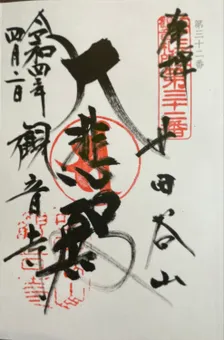 第三十二番
奉拝
第三十二番
世田谷山
大悲殿
令和四年
四月二日
観音寺